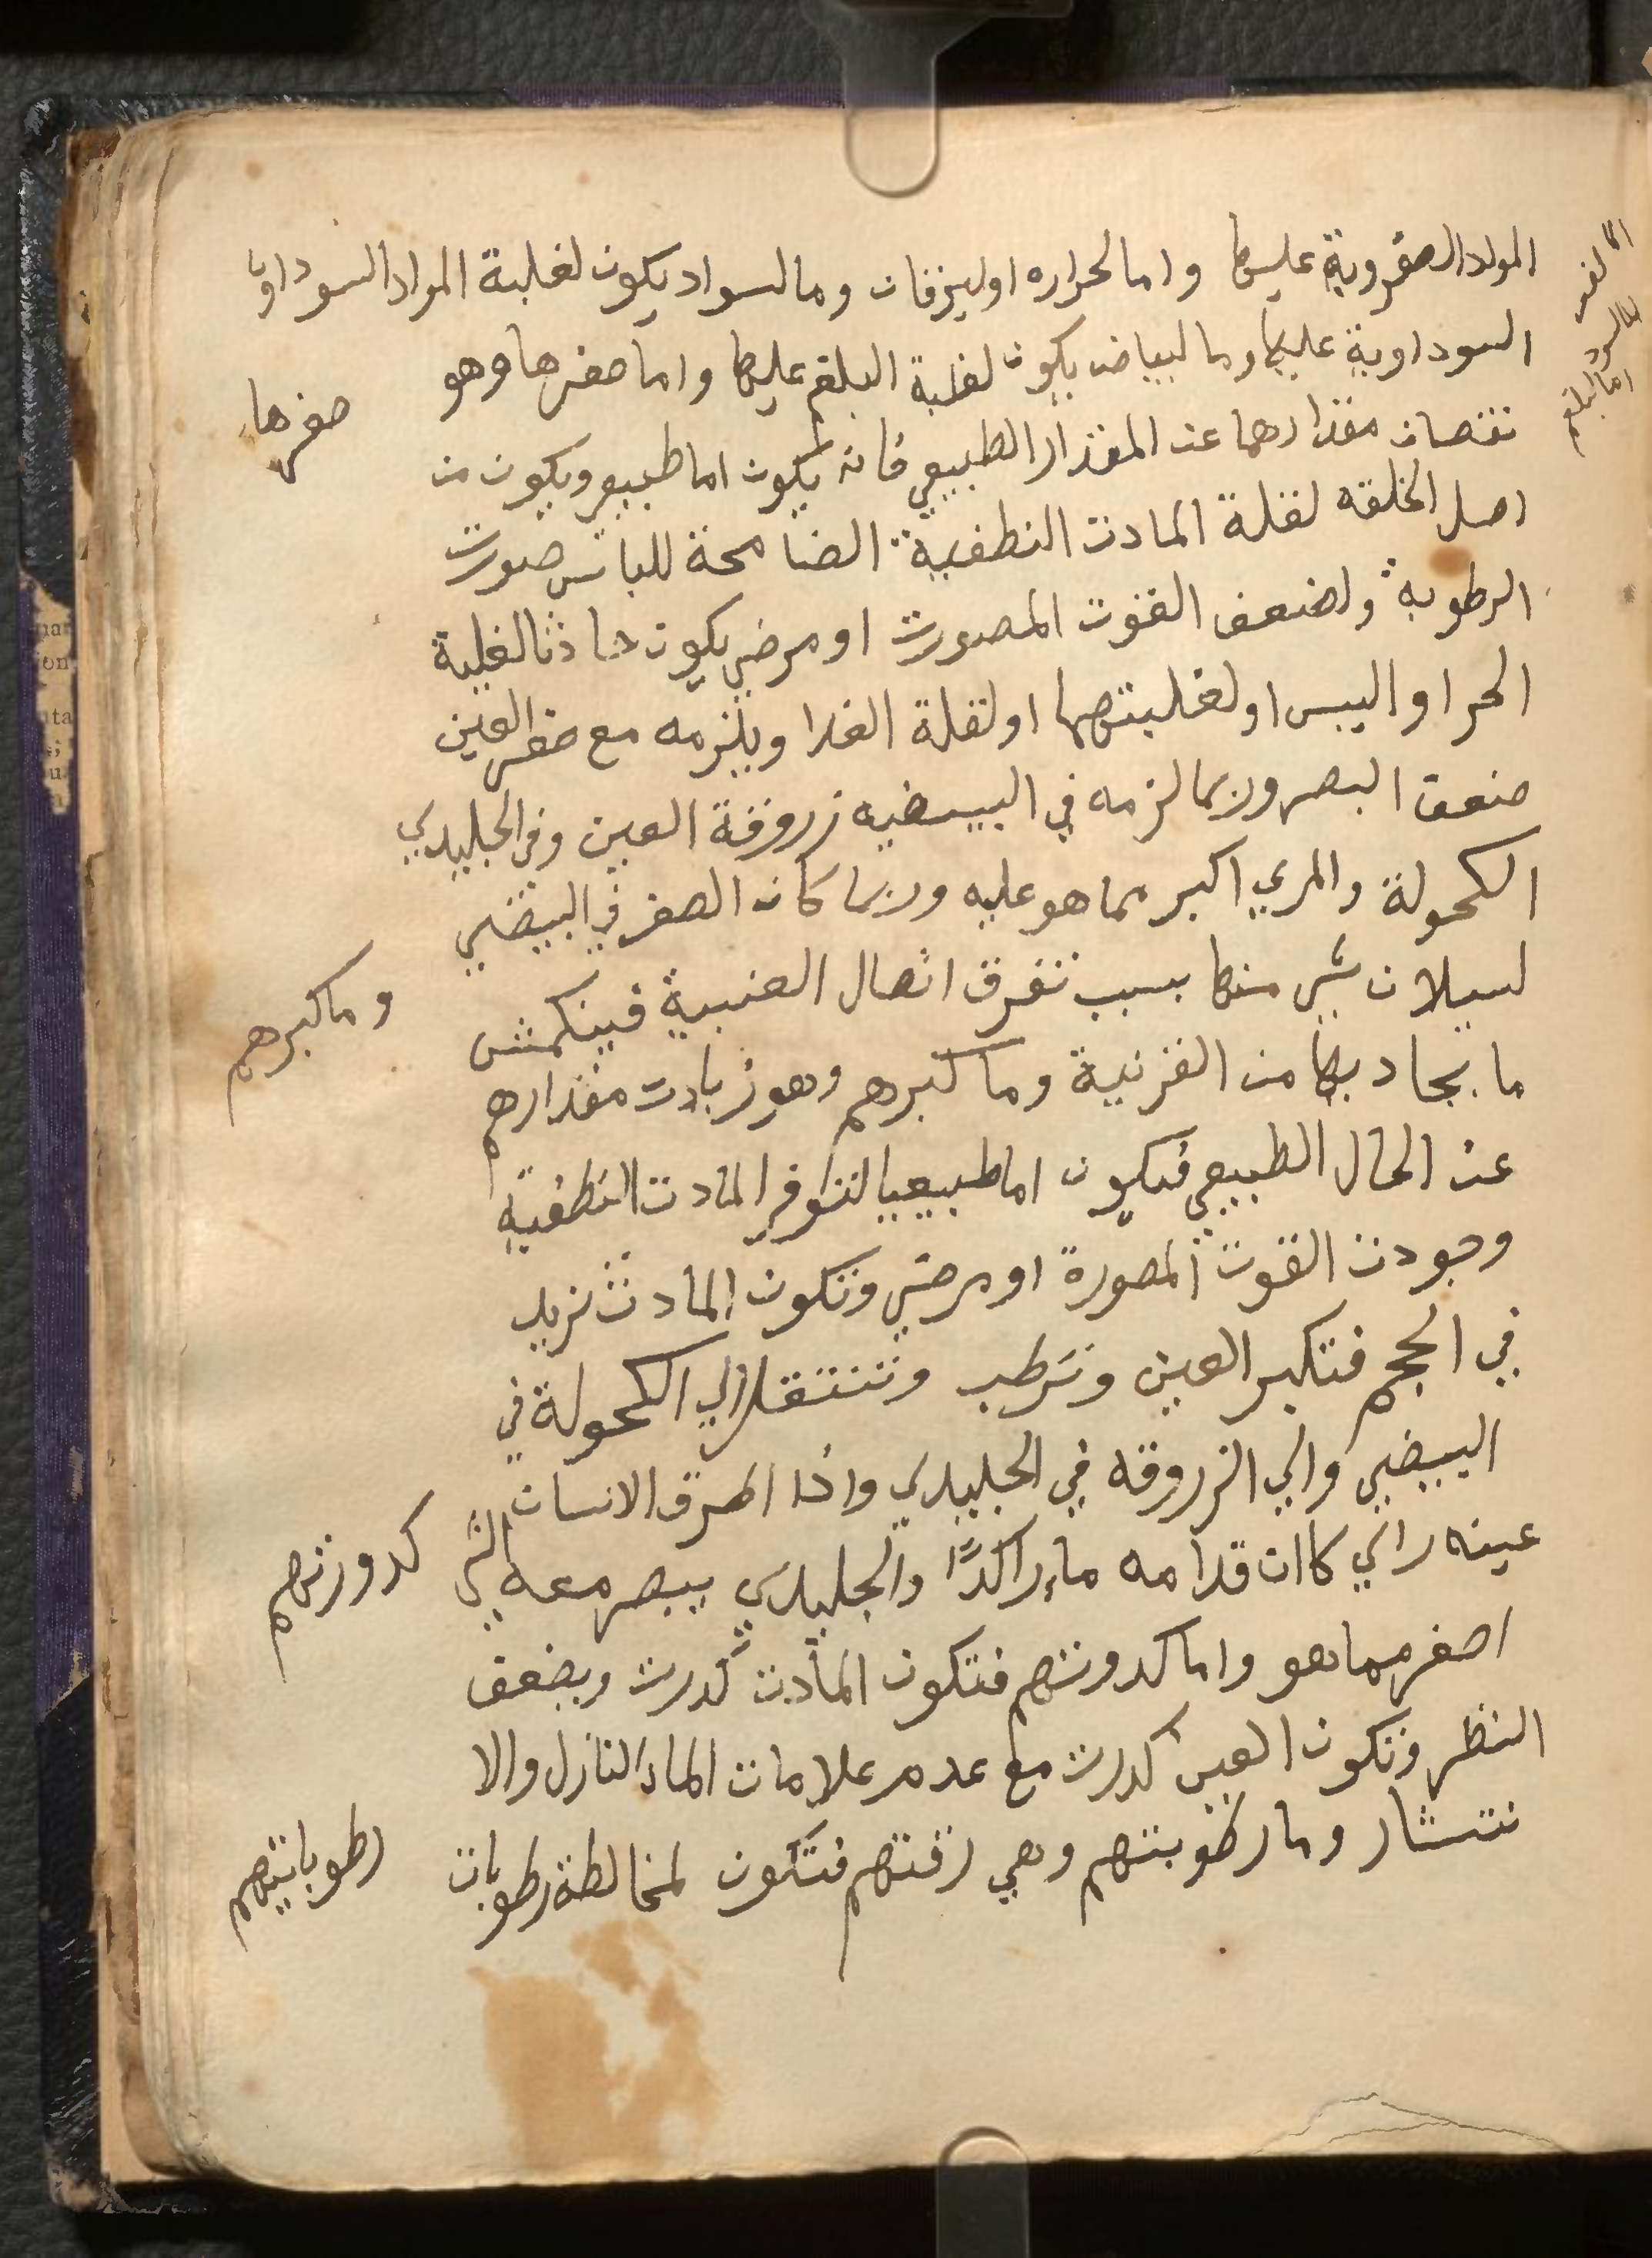 المواد الصفروية عليها واما لحراره او ليزقان وما لسواد يكون لغلبة المواد السوداويا
السوداوية عليها وما لبياض يكون لغلبة البلغم عليها واما صغرها وهو
صغرها
نقصان مقدارهما عن المقدار الطبيعي فانه يكون اما طبيعي ويكون من
اصل الخلقه لقلة المادت النطفية الضامحة للباس صورت
الرطوبة ولضعف القوت المصورت او مرضي يكون حادثا لغلبة
الحر او اليبس او لغلبتهما او لقلة الغدا ويلزمه مع صغر العين
ضعف البصر وربما لزمه في البيضيه زروقة العين وفي الجليدي
الكحولة والمري اكبر مما هو عليه وربما كان الصغر في البيضي
لسيلان شي منها بسبب تفرق اتصال العنبية فينكمش
وما كبرهم
ما يحاد بها من القرنية وما كبرهم وهو زيادت مقدارهم
عن الحال الطبيعي فيكون اما طبيعيا لتوفر المادت النطفية
وجودت القوت المصورة او مرضي وتكون المادت تزيد
في الحجم فتكبر العين وترطب وتنتقل الي الكحولة في
البيضي والي الزروقه في الجليدي واذا اطرق الانسان
عينه راي كاان قدامه ماء راكدًا والجليدي يبصر معه الشي
كدورتهم
اصغر مما هو واما كدورتهم فتكون المادت كدرت ويضعف
النظر وتكون العين كدرت مع عدم علامات الماء النازل والا
نتشار وما رطوبتهم وهي رقتهم فتكون لمخالطة رطوبات
رطوباتهم
اما البلغم